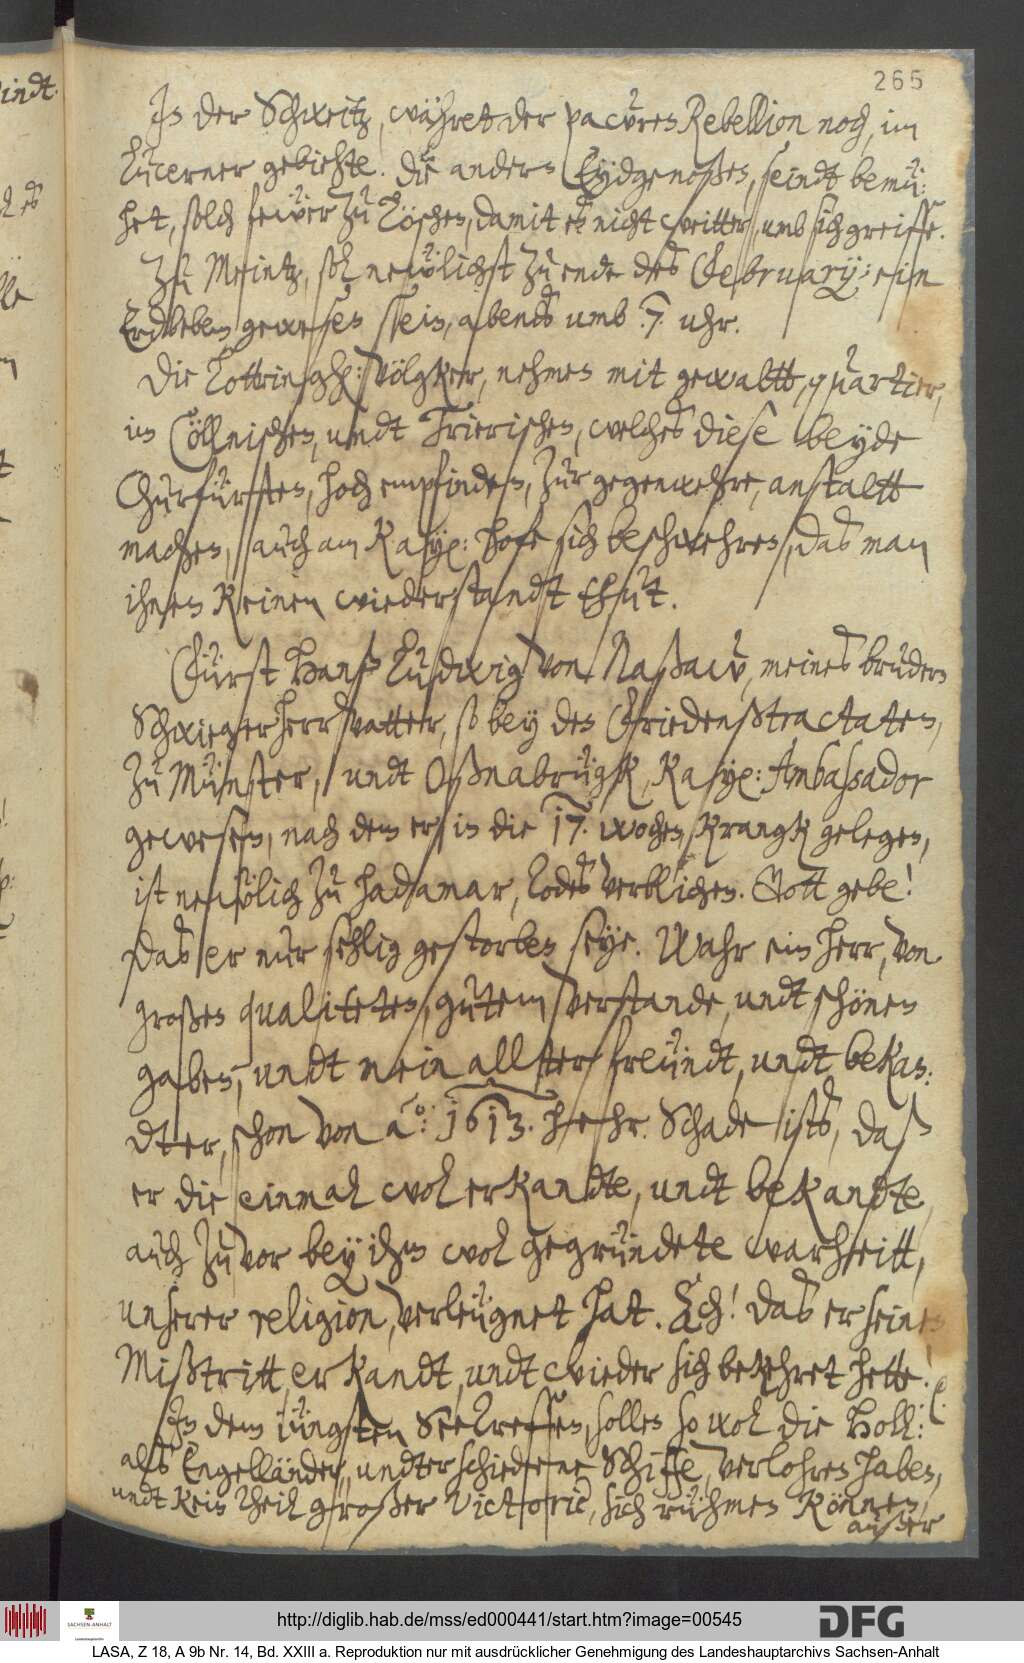 265
In der Schweitz, währet der pawren Rebellion noch, im
Lucerner gebiehte. Die andern Eydgenoßen, seindt bemü¬
het, solch fewer zu löschen, damit es nicht weitter, umb sich greiffe.
Zu Meintz, sol newlichst zu ende des February: ein
Erdbeben gewesen sein, abends umb .7. uhr.
Die Lottringh: völgker, nehmen mit gewaltt, quartier,
im Cöllnischen, undt Trierischen, welches diese beyde
Churfürsten, hoch empfinden, zur gegenwehre, anstaltt
machen, auch am Kayß: hofe sich beschwehren, das man
ihnen keinen wiederstandt thut.
Fürst Hanß Ludwig von Naßaw, meines bruders
Schwiegerherrvatter, so bey den Friedenßtractaten,
zu Münster, undt Oßnabrügk, Kayß: Ambassador
gewesen, nach dem er in die 17. wochen, krangk gelegen,
ist newlich zu Hadamar, todes verblichen. Gott gebe!
das er nur sehlig gestorben seye. Wahr ein herr, von
großen qualiteten, gutem verstande, undt schönen
gaben, undt mein allter freündt, undt bekan¬
dter, schon von a.o: 1613. hehr. Schade ists, daß
er die einmal wol erkandte, undt bekandte,
auch zuvor bey ihm wol gegründete warheitt,
unserer religion, verleügnet hat. Ach! das er seinen
Mißtritt erkandt, undt wieder sich bekehret hette! (etc.
In dem iüngsten Seetreffen, sollen so wol die Holl:
als Engelländer, undterschiedene Schiffe, verlohren haben,
undt kein theil großer victorie, sich rühmen können,
außer
indt.
http://diglib.hab.de/mss/ed000441/start.htm?image=00545
SACHSEN-ANHALT
DFG
LASA, Z 18, A 9b Nr. 14, Bd. XXIII a. Reproduktion nur mit ausdrücklicher Genehmigung des Landeshauptarchivs Sachsen-Anhalt